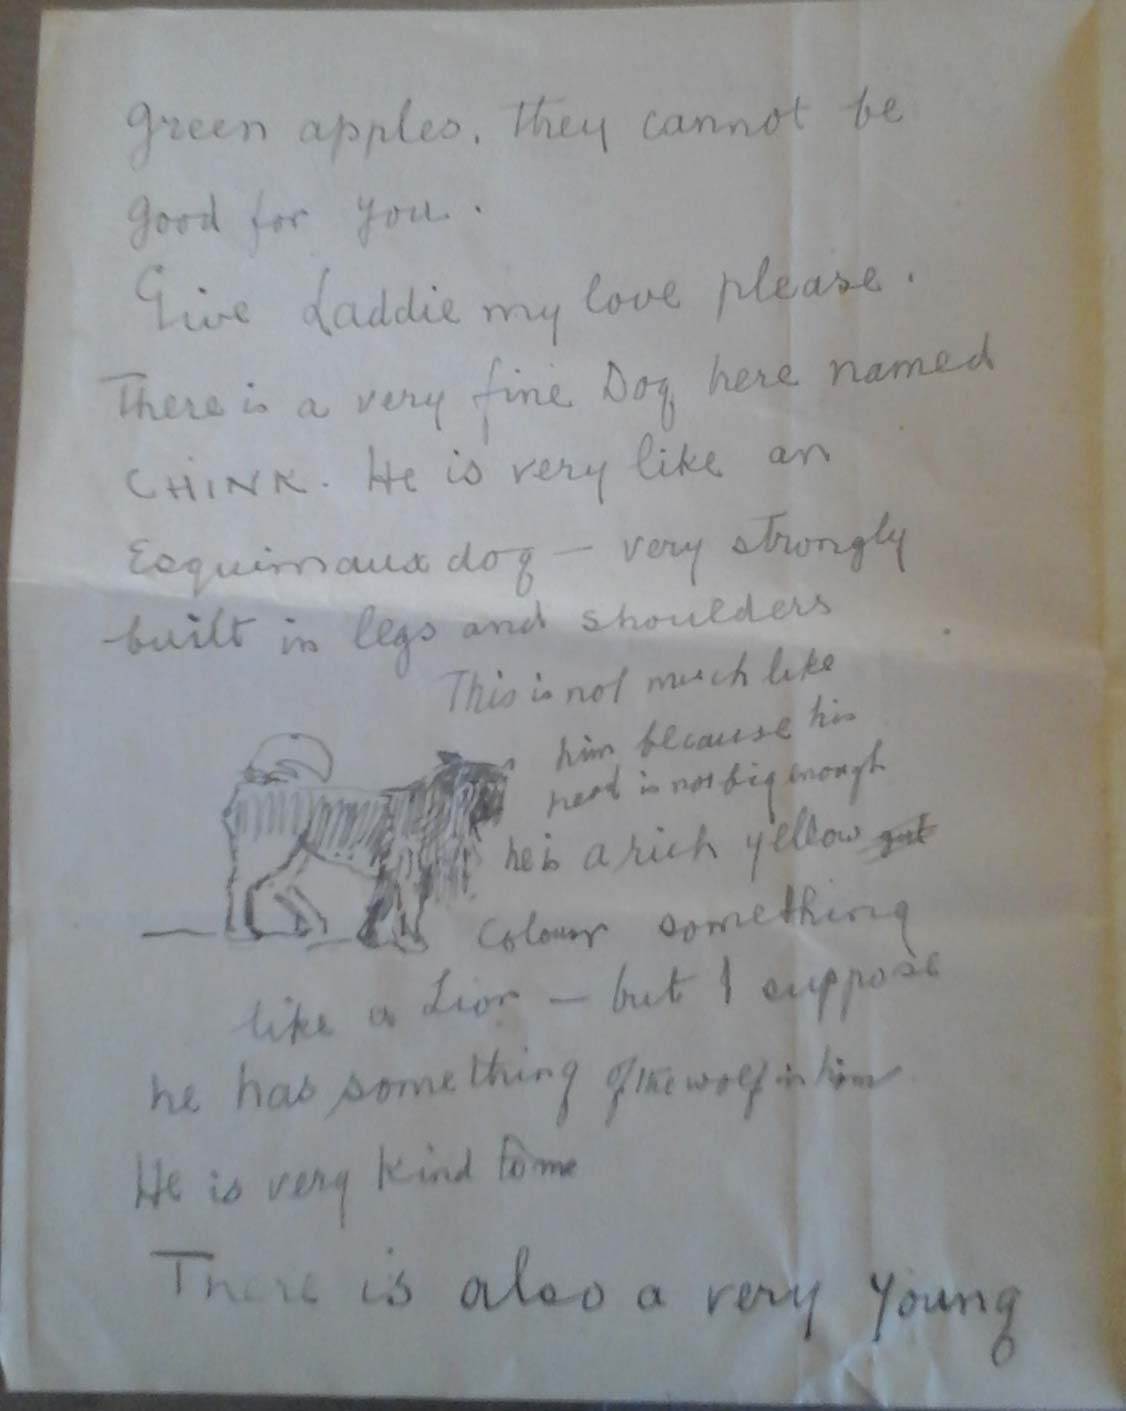 green apples. they cannot be
good for you.
Give Laddie my love please.
There is a very fine Dog here named
CHINK. He is very like an
Esquimaux dog — very strongly
built in legs and shoulders
This is not much like
him because his
head is not big enough
he is a rich yellow
colour something
like a Lion — but I suppose
he has something of the wolf in him
He is very kind to me
There is also a very young